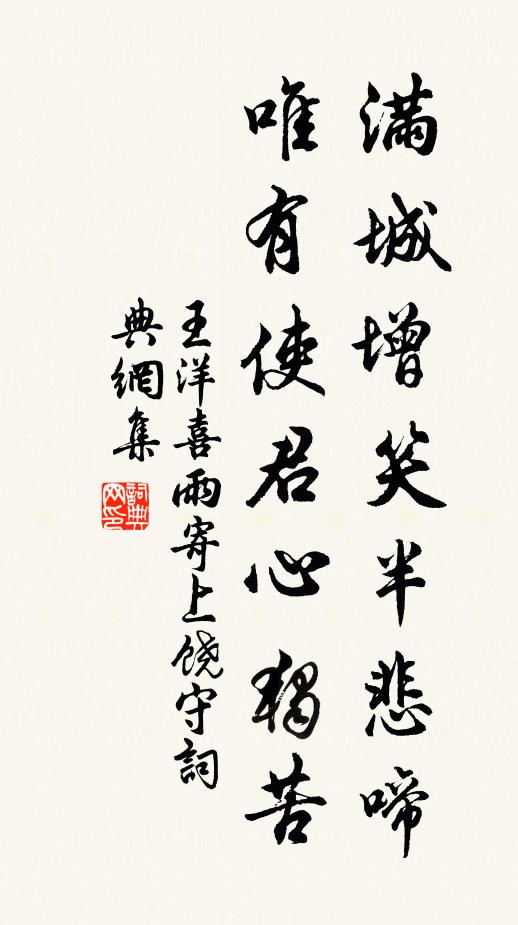 滿城增笑半悲啼
唯有使君心獨苦
王洋喜雨寄上饶守詞
典網集
詞典
网印